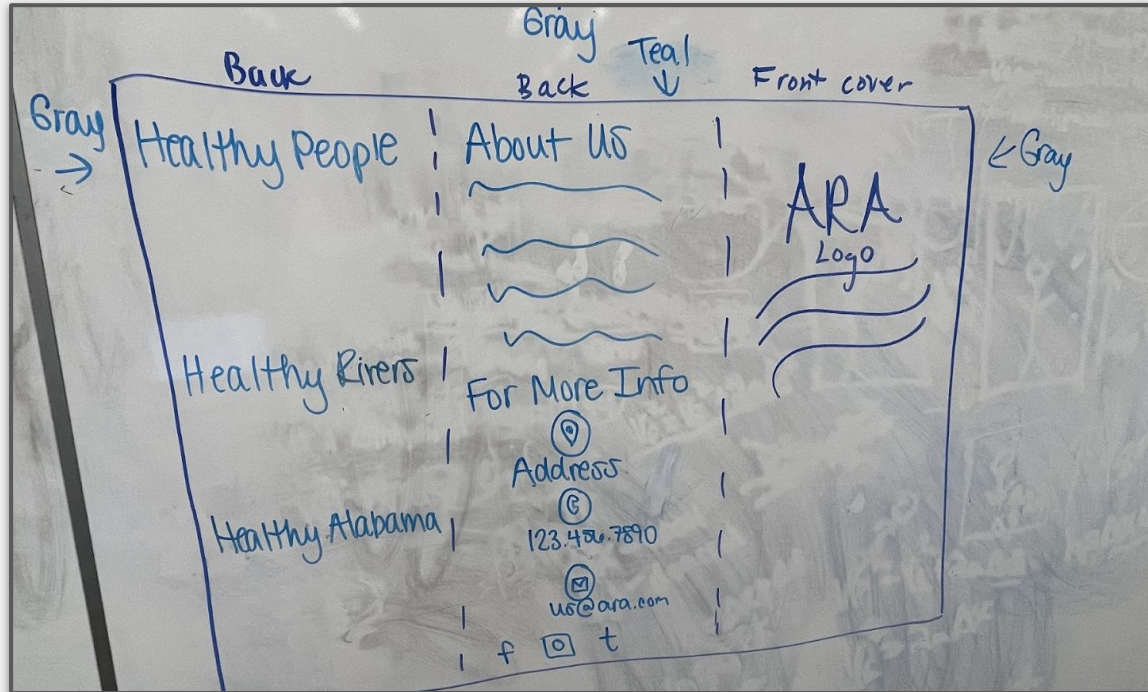 Gray
Teal
Back
Back
Front cover
Gray
Gray
Healthy People
Healthy Rivers
Healthy Alabama
About Us
For More Info
Address
123.456.7890
us@ara.com
f
t
ARA
Logo